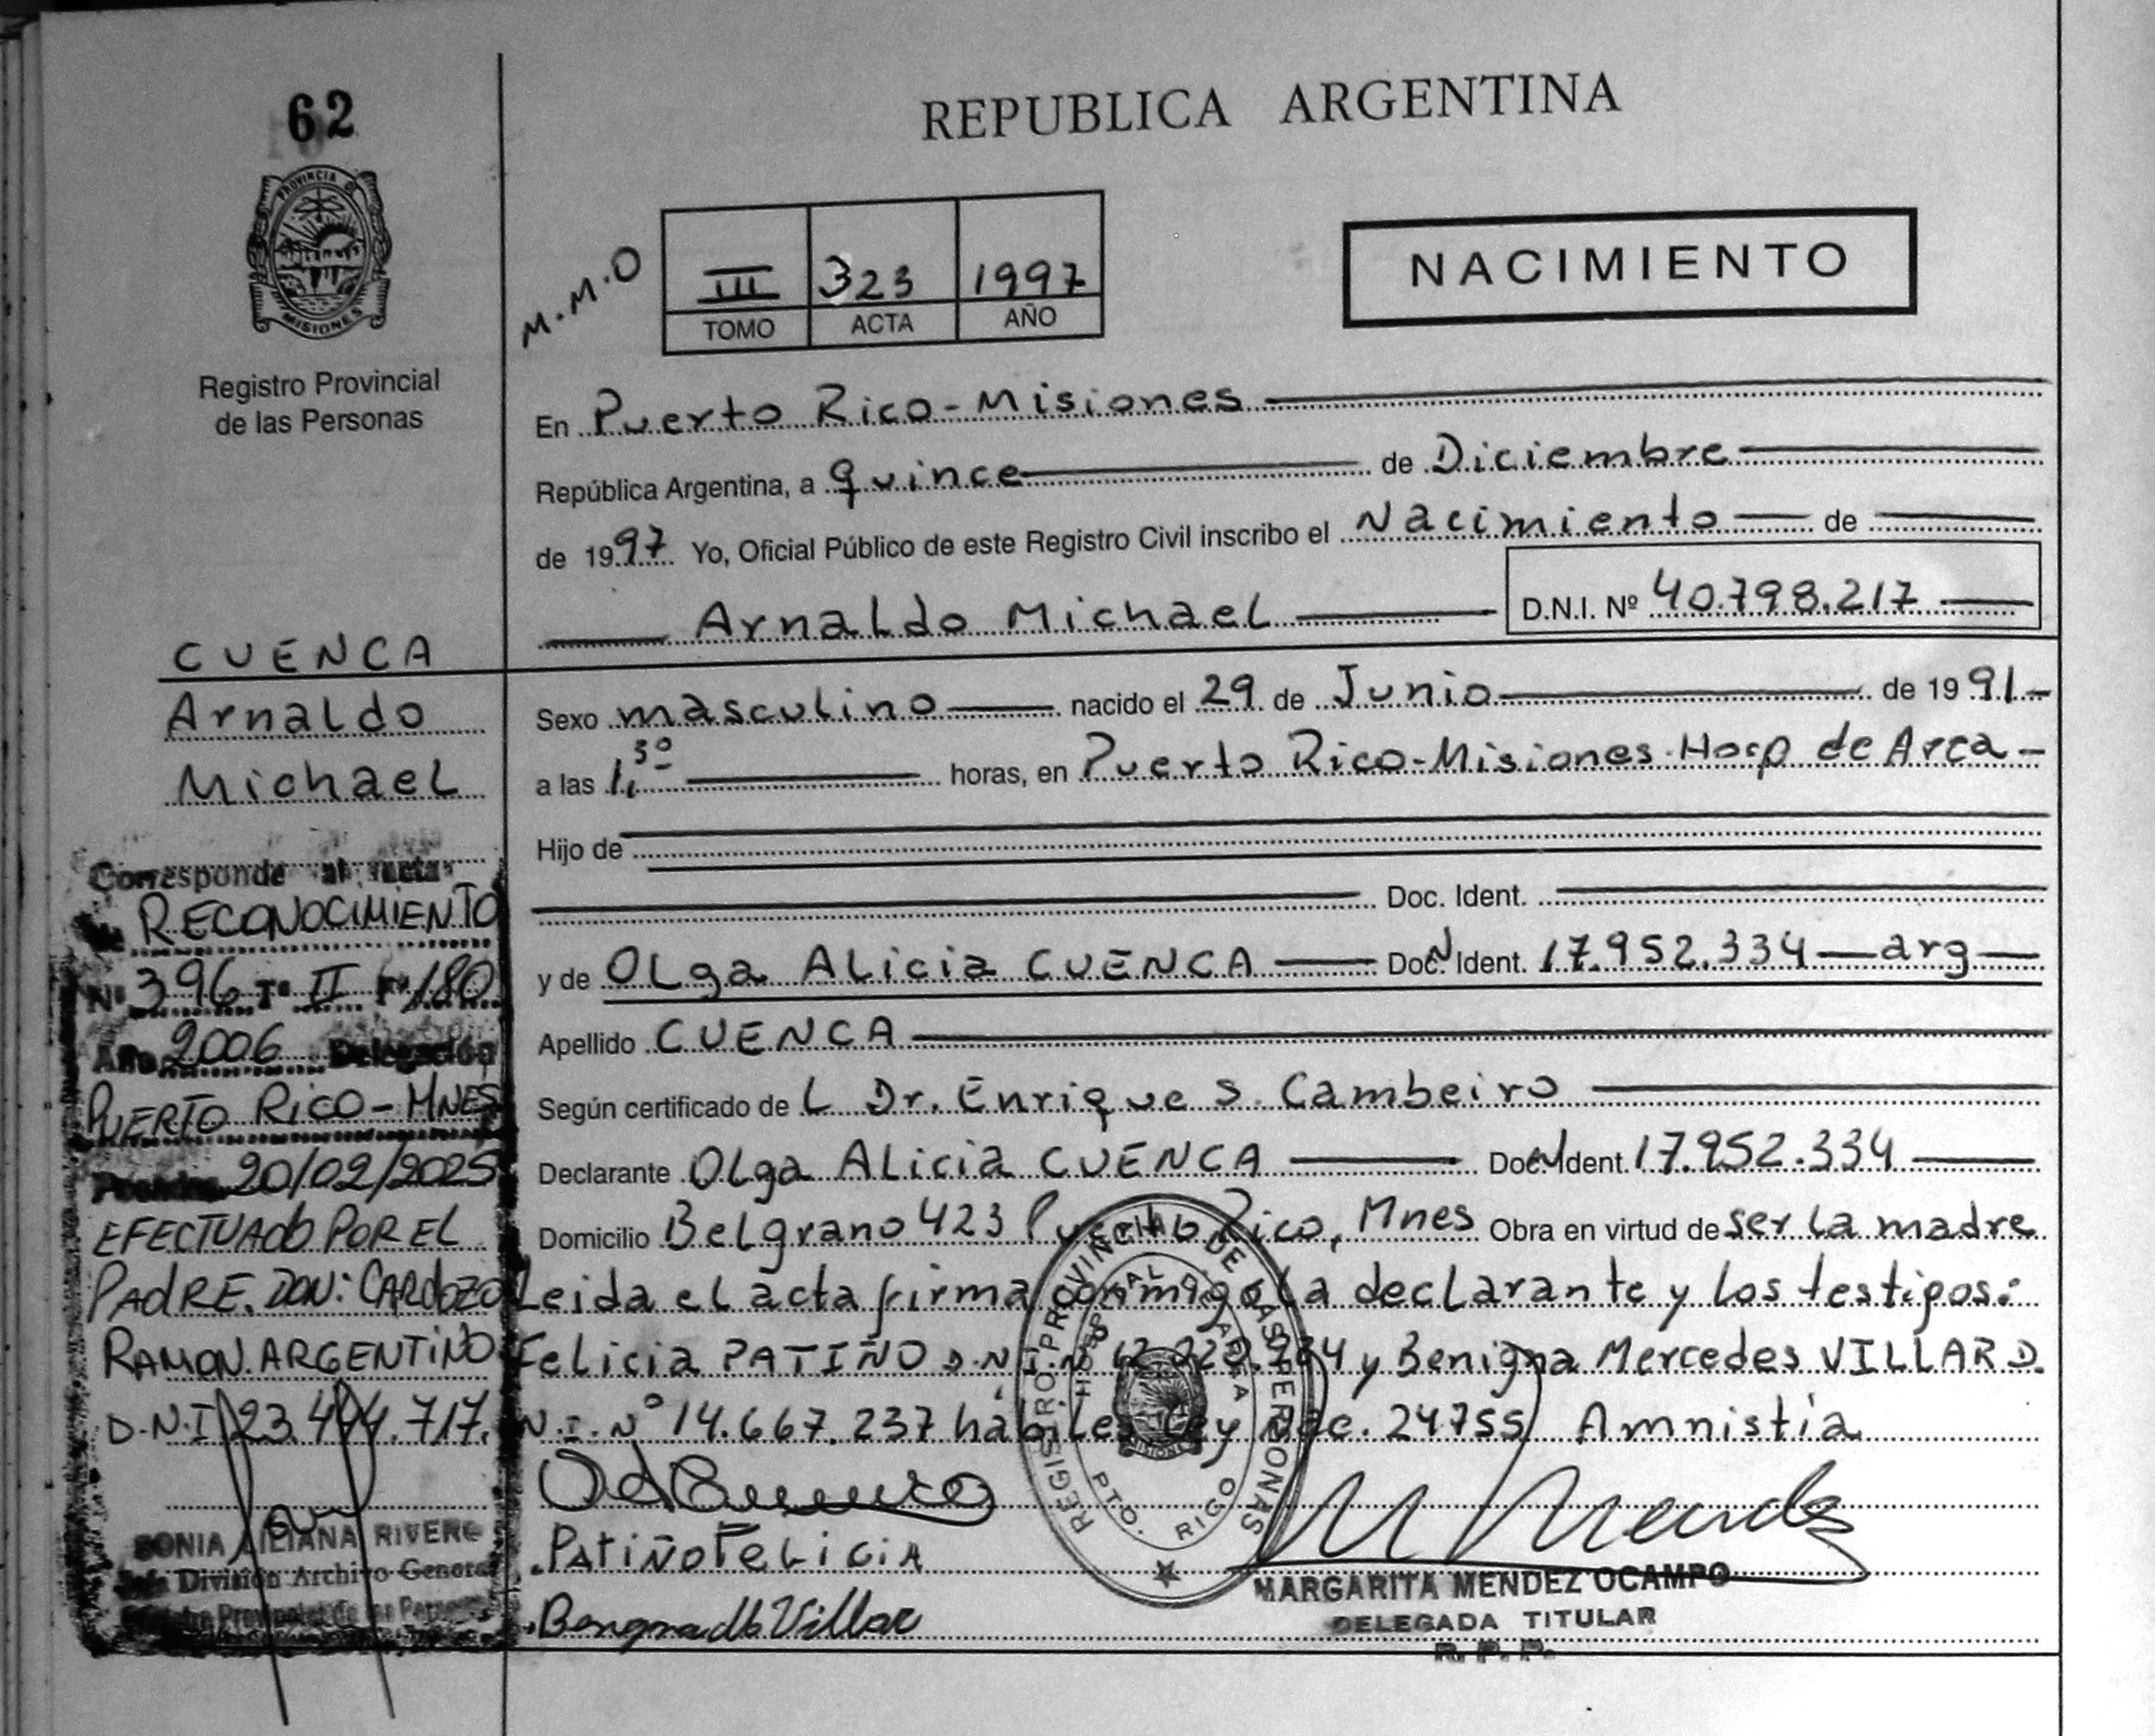 62
REPUBLICA ARGENTINA
PROVINCIA DE
MISIONES
Registro Provincial
de las Personas
M.M.O
III 323 1997
TOMO ACTA AÑO
NACIMIENTO
En Puerto Rico-Misiones
República Argentina, a quince de Diciembre
de 1997 Yo, Oficial Público de este Registro Civil inscribo el Nacimiento de
Arnaldo Michael D.N.I. Nº 40.798.217
CUENCA
Arnaldo
Michael
Sexo masculino nacido el 29 de Junio de 1991
a las 1,30 horas, en Puerto Rico-Misiones Hosp de Area
Hijo de
Doc. Ident.
y de Olga Alicia CUENCA Doc. Ident. 17.952.334 arg
Apellido CUENCA
Según certificado de L Dr. Enrique S. Cambeiro
Declarante Olga Alicia CUENCA Doc Ident 17.952.334
Domicilio Belgrano 423 Puerto Rico, Mnes Obra en virtud de ser la madre
Leida el acta firma conmigo la declarante y los testigos:
Felicia PATIÑO D.N.I.Nº y Benigna Mercedes VILLAR D.
N.I. Nº 14.667.237 hábiles Ley Nac. 24755 Amnistia
Corresponde al acta
de RECONOCIMIENTO
Nº 396 Tº II Fº 180
Año 2006 Delegación
PUERTO RICO-MNES
20/02/2025
EFECTUADO POR EL
PADRE. DON: CARDOZO
RAMON. ARGENTINO
D.N.I 23.494.717.
SONIA LILIANA RIVERO
Jefa División Archivo General
Registro Provincial de las Personas
REGISTRO PROVINCIAL DE LAS PERSONAS
HOSPITAL AREA
PTO. RICO
Patiño Felicia
Villar
MARGARITA MENDEZ OCAMPO
DELEGADA TITULAR
R.P.P.